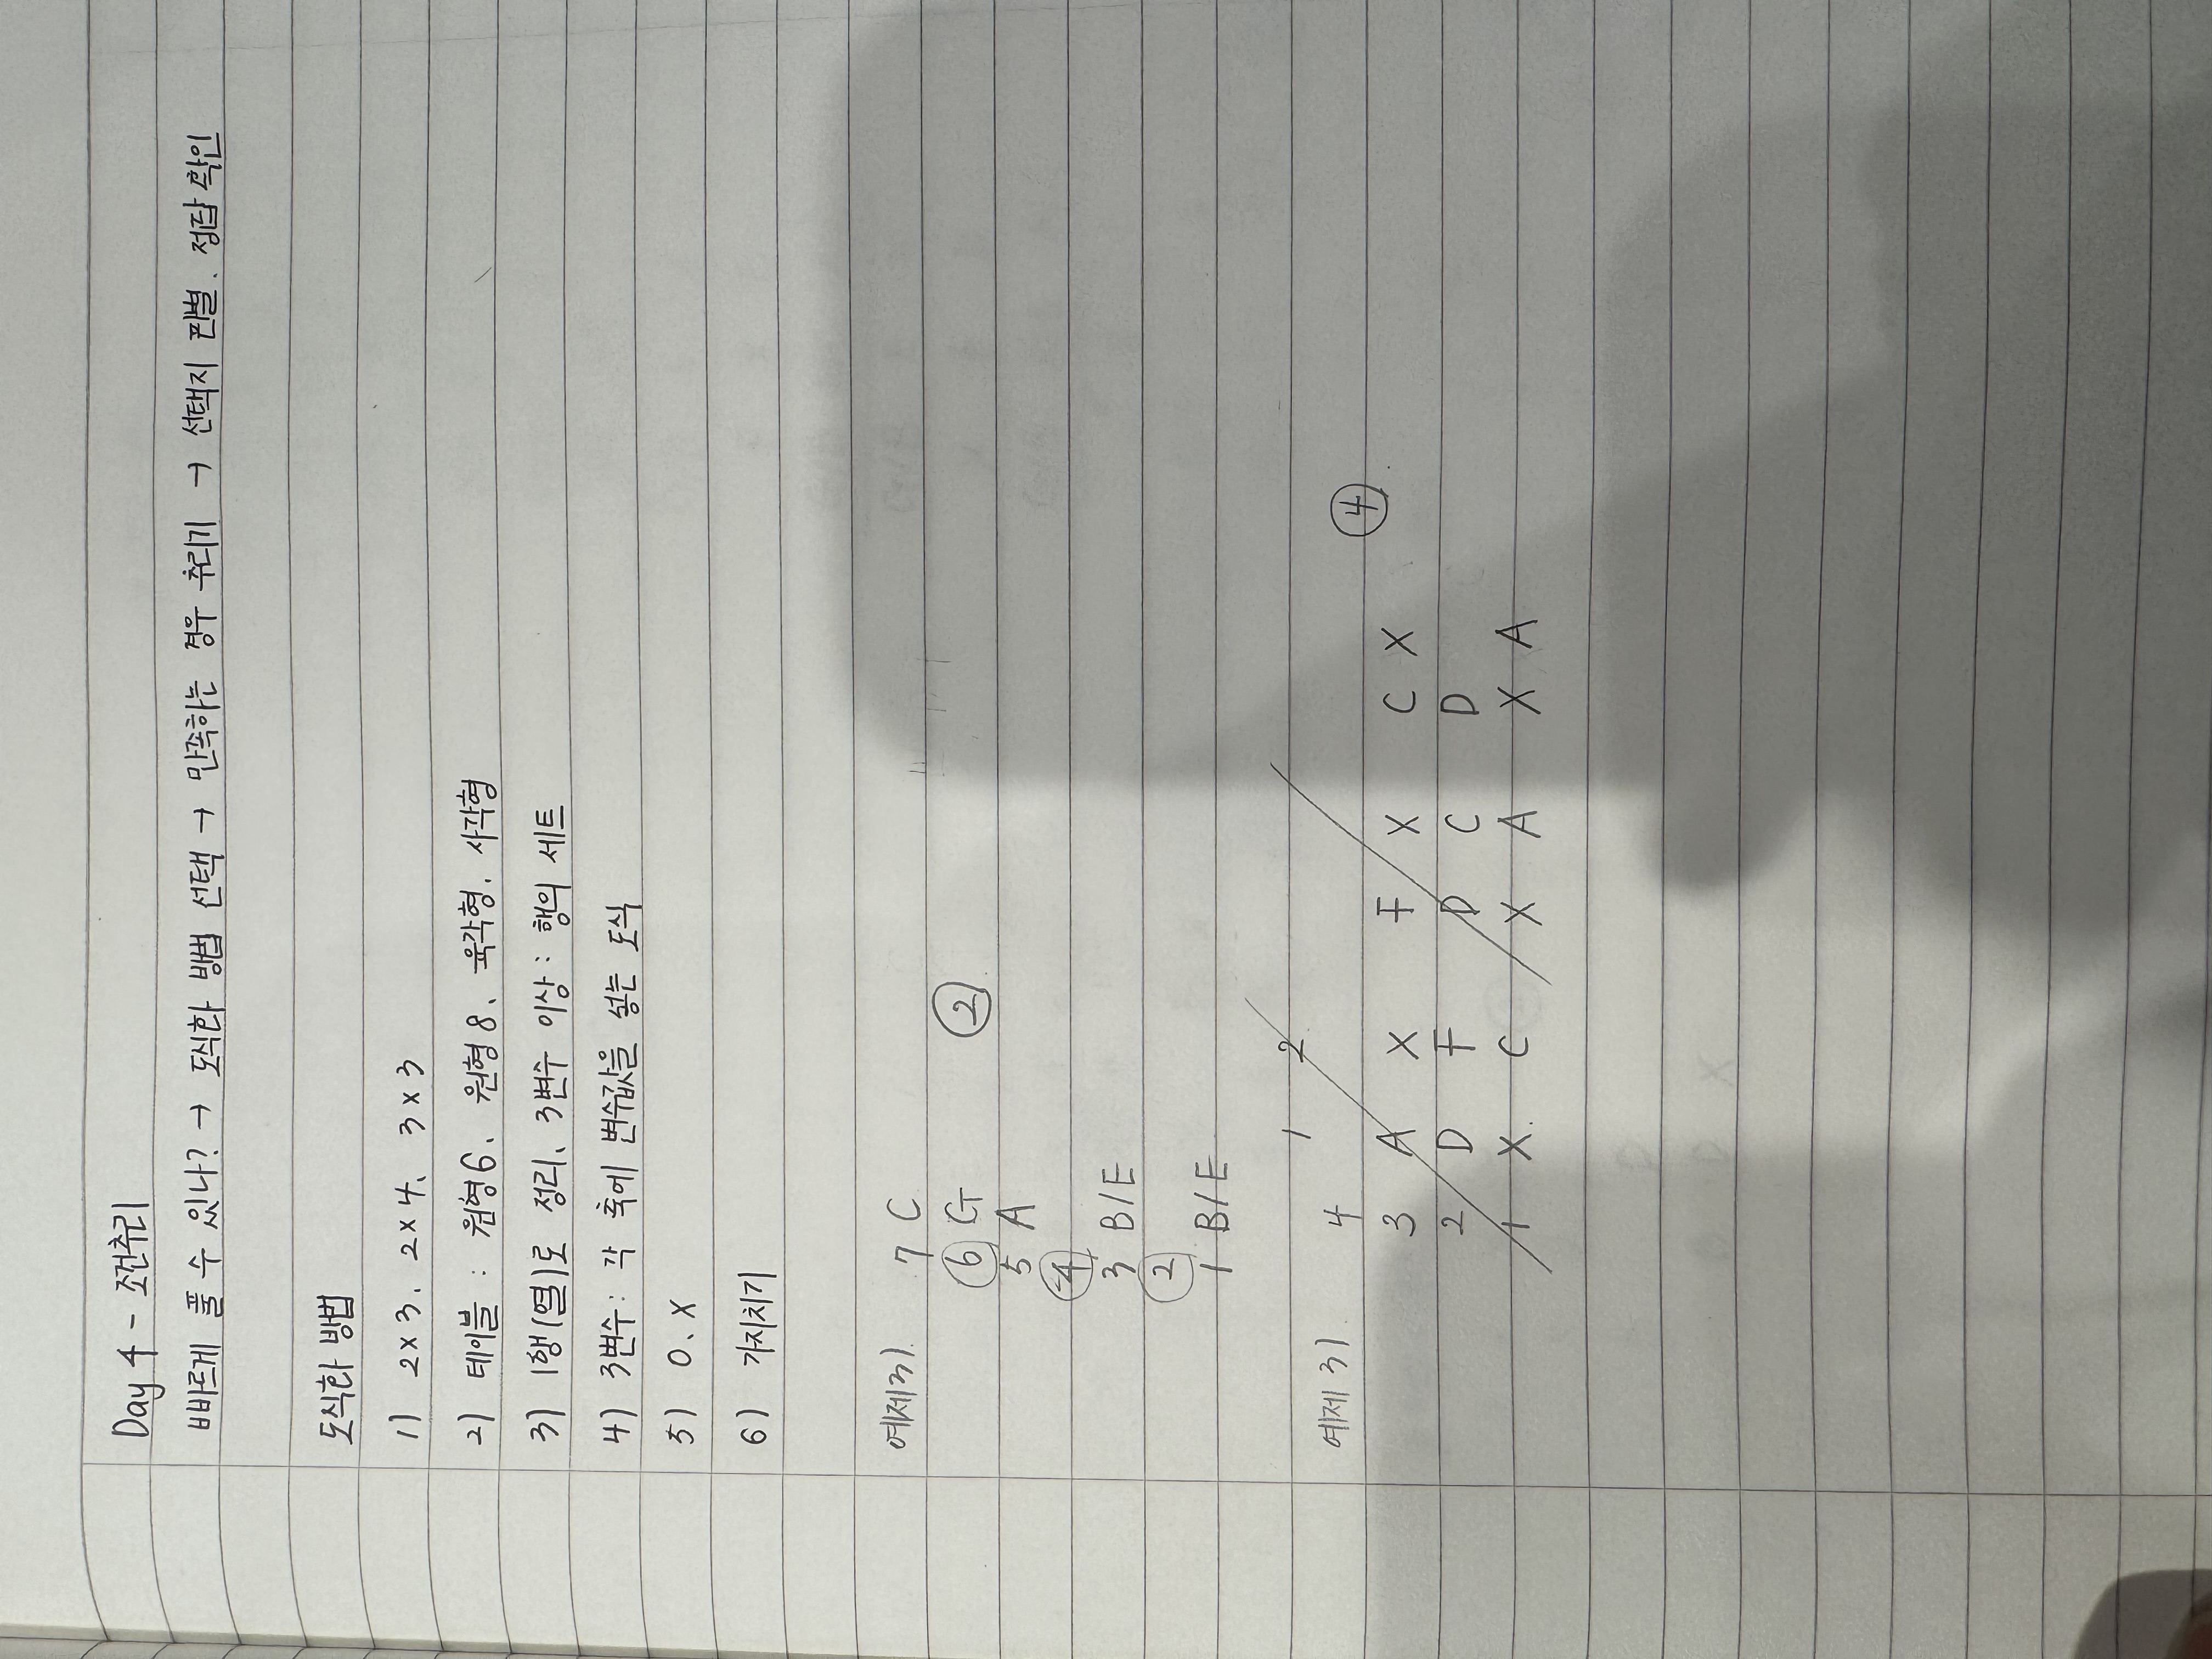 Day 4 - 조건추리
빠르게 풀 수 있나? → 도식화 방법 선택 → 만족하는 경우 추리기 → 선택지 판별, 정답 확인
도식화 방법
1) 2×3, 2×4, 3×3
2) 테이블 : 원형6, 원형8, 육각형, 사각형
3) 1행(열)로 정리, 3변수 이상 : 행의 세트
4) 3변수 : 각 축에 변수값을 넣는 도식
5) O, X
6) 가지치기
예제3)
7 C
6 G ②
5 A
4
3 B/E
2
1 B/E
예제 3) 1 2
4 ④
3 A X F X C X
2 D F D C D
1 X C X A X A